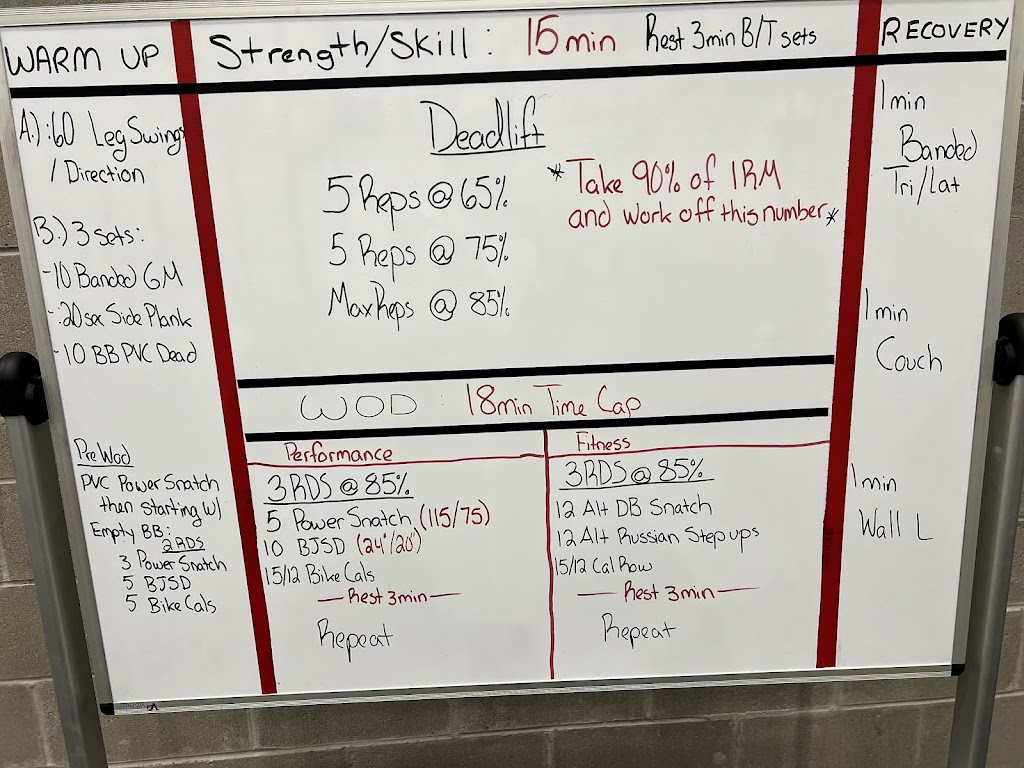 WARM UP
A.) :60 Leg Swings
/ Direction
B.) 3 sets:
-10 Banded GM
-:20sec Side Plank
-10 BB PVC Dead
Pre Wod
PVC Power Snatch
then starting w/
Empty BB:
2 RDS
3 Power Snatch
5 BJSD
5 Bike Cals
Strength/Skill: 15min Rest 3min B/T sets
Deadlift
5 Reps @ 65%
5 Reps @ 75%
Max Reps @ 85%
*Take 90% of 1RM
and work off this number*
WOD: 18min Time Cap
Performance
3 RDS @ 85%
5 Power Snatch (115/75)
10 BJSD (24"/20")
15/12 Bike Cals
— Rest 3min —
Repeat
Fitness
3 RDS @ 85%
12 Alt DB Snatch
12 Alt Russian Step ups
15/12 Cal Row
— Rest 3min —
Repeat
RECOVERY
1 min
Banded
Tri/Lat
1 min
Couch
1 min
Wall L